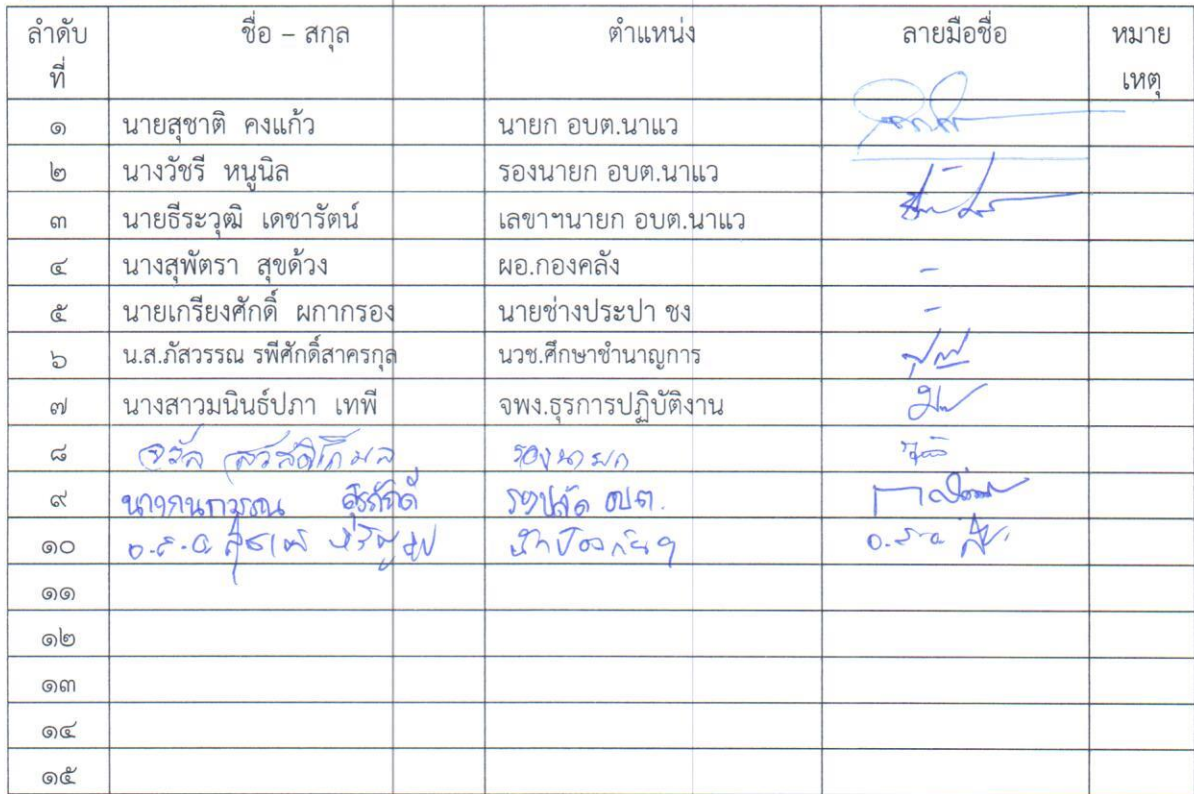 ลำดับ ชื่อ – สกุล ตำแหน่ง ลายมือชื่อ หมาย
ที่ เหตุ
๑ นายสุชาติ คงแก้ว นายก อบต.นาแว
๒ นางวัชรี หนูนิล รองนายก อบต.นาแว
๓ นายธีระวุฒิ เดชารัตน์ เลขาฯนายก อบต.นาแว
๔ นางสุพัตรา สุขด้วง ผอ.กองคลัง -
๕ นายเกรียงศักดิ์ ผกากรอง นายช่างประปา ชง -
๖ น.ส.ภัสวรรณ รพีศักดิ์สาครกุล นวช.ศึกษาชำนาญการ
๗ นางสาวมนินธ์ปภา เทพี จพง.ธุรการปฏิบัติงาน
๘ รองนายก
๙ รองปลัด อบต.
๑๐
๑๑
๑๒
๑๓
๑๔
๑๕